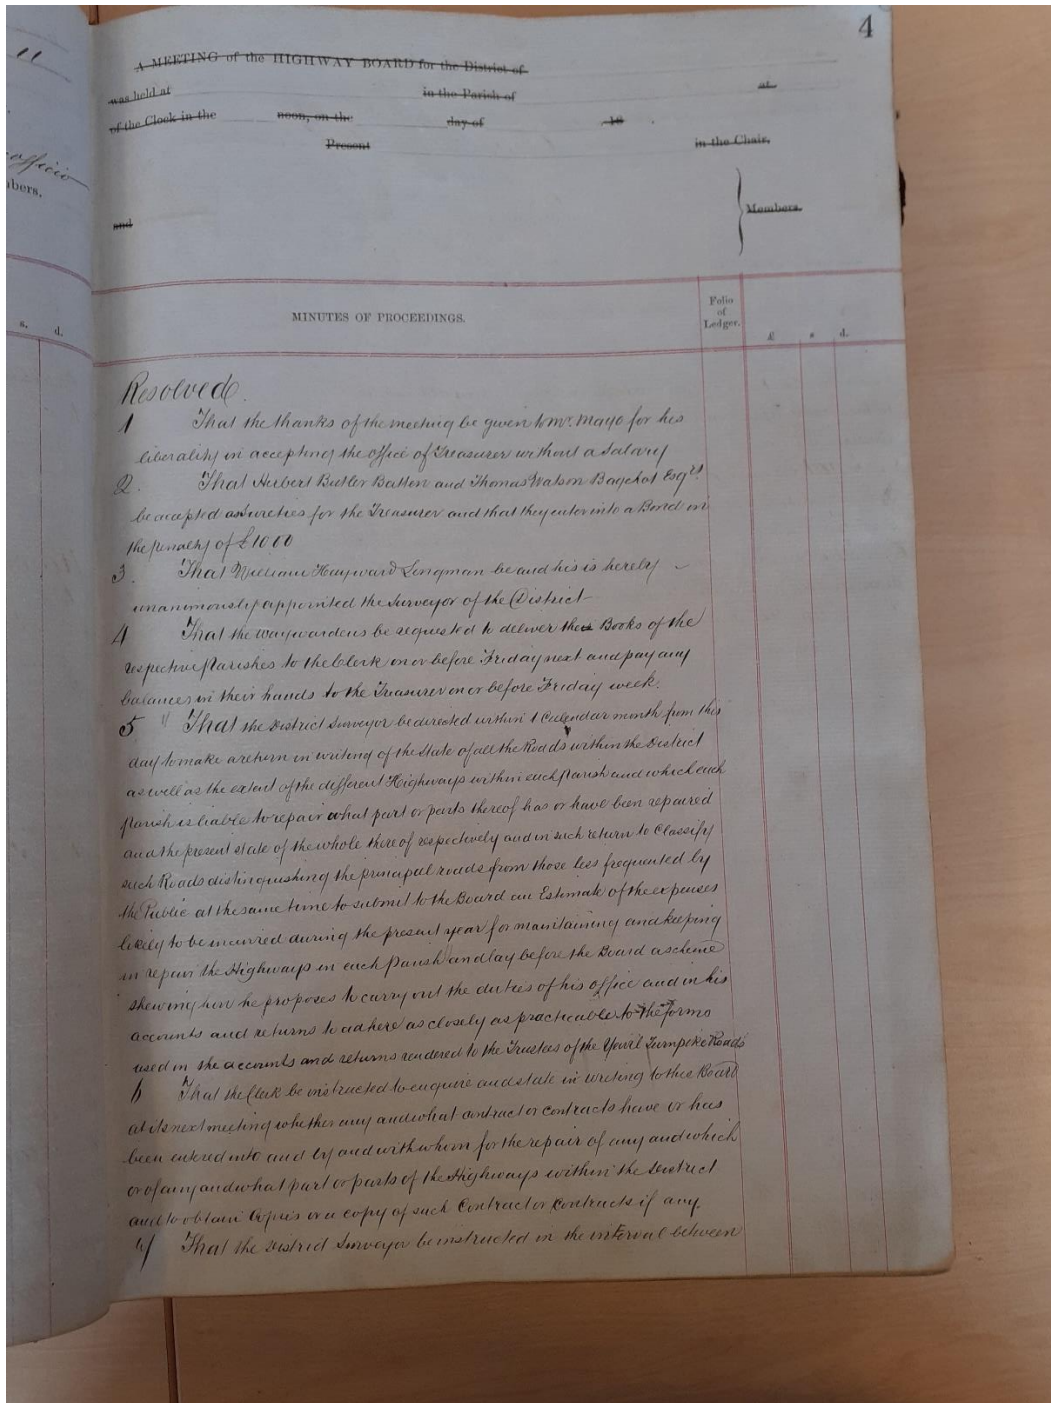 4
A MEETING of the HIGHWAY BOARD for the District of
was held at in the Parish of at
of the Clock in the noon, on the day of 18
Present in the Chair.
and Members.
officio
bers.
s. d.
MINUTES OF PROCEEDINGS. Folio of Ledger. £ s d.
Resolved.
1 That the thanks of the meeting be given to Mr. Mayo for his
liberality in accepting the office of Treasurer without a Salary
2. That Herbert Butler Batten and Thomas Watson Bagehot Esqrs.
be accepted as Sureties for the Treasurer and that they enter into a Bond in
the penalty of £1000
3. That William Hayward Lingman be and his is hereby
unanimously appointed the Surveyor of the District
4 That the waywardens be requested to deliver the Books of the
respective parishes to the Clerk on or before Friday next and pay any
balances in their hands to the Treasurer on or before Friday week.
5 That the District Surveyor be directed within 1 Calendar month from this
day to make a return in writing of the State of all the Roads within the District
as well as the extent of the different Highways within each parish and which each
parish is liable to repair what part or parts thereof has or have been repaired
and the present state of the whole thereof respectively and in such return to Classify
such Roads distinguishing the principal roads from those less frequented by
the Public at the same time to submit to the Board an Estimate of the expenses
likely to be incurred during the present year for maintaining and keeping
in repair the Highways in each parish and lay before the Board a scheme
shewing how he proposes to carry out the duties of his office and in his
accounts and returns to adhere as closely as practicable to the forms
used in the accounts and returns rendered to the Trustees of the Yeovil Turnpike Roads
6 That the Clerk be instructed to enquire and state in writing to this Board
at its next meeting whether any and what contract or contracts have or has
been entered into and by and with whom for the repair of any and which
or of any and what part or parts of the Highways within the District
and to obtain Copies or a copy of such Contract or Contracts if any.
7 That the District Surveyor be instructed in the interval between